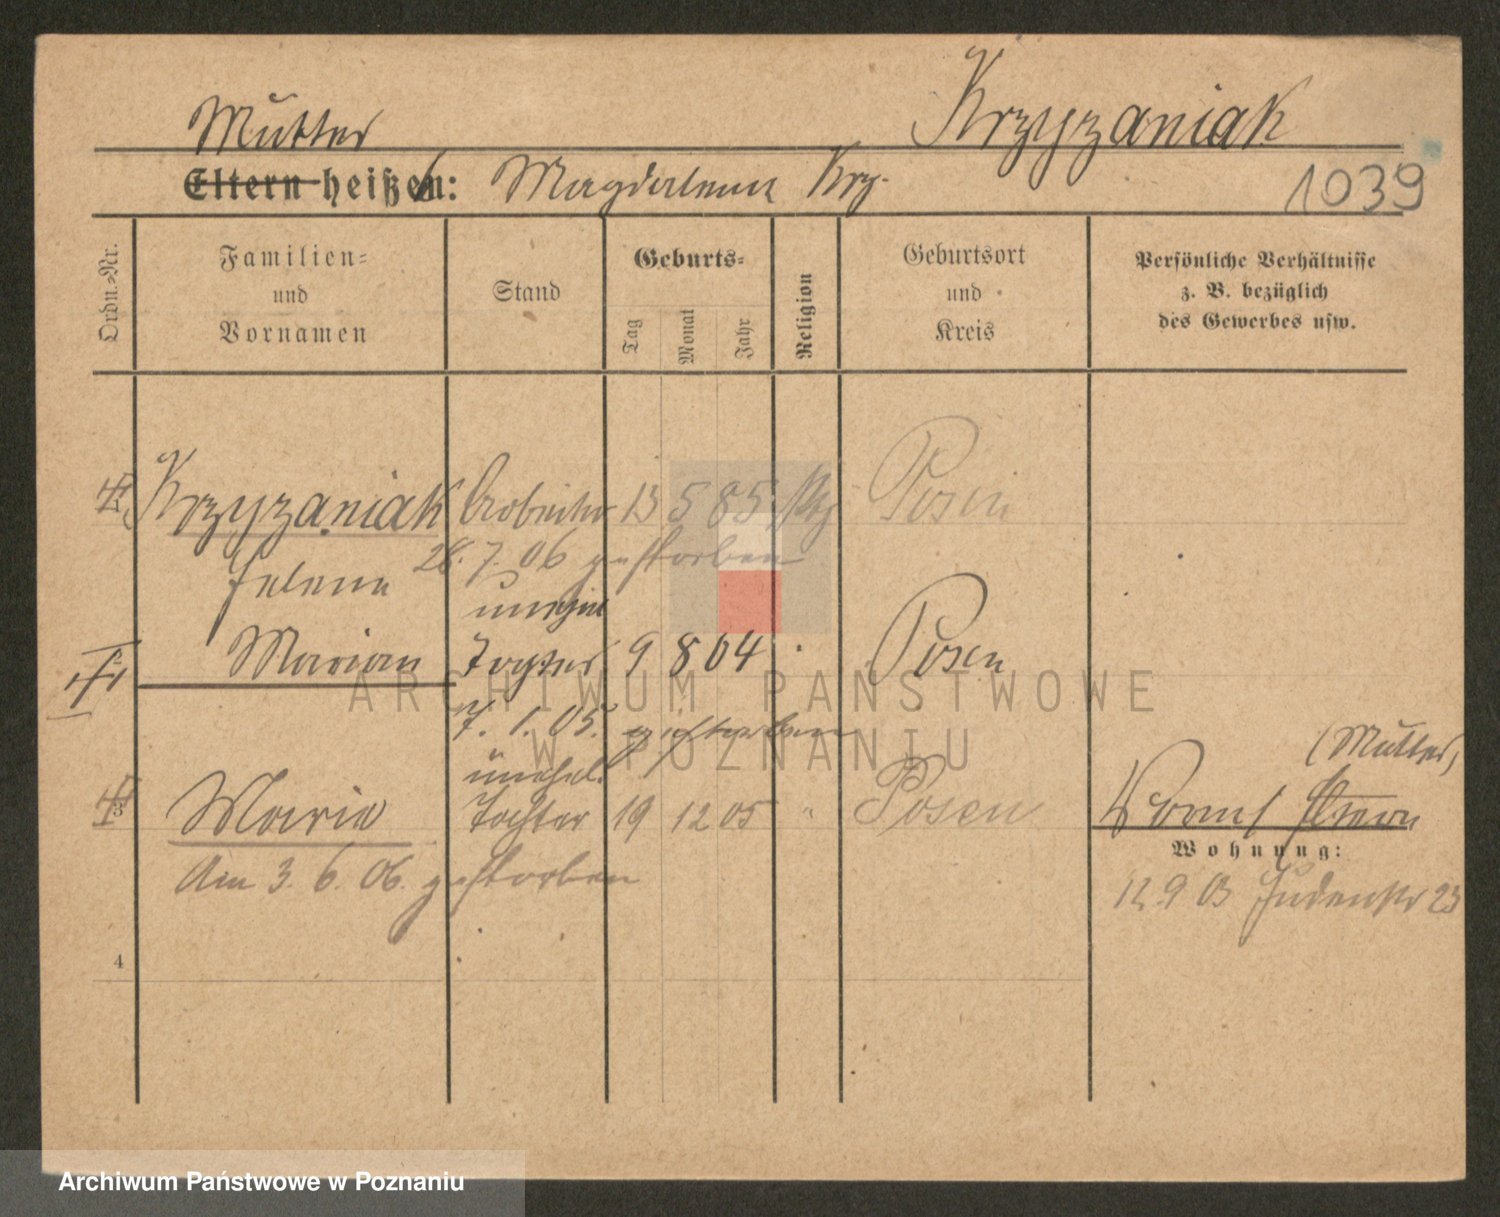 Krzyzaniak
Mutter
Eltern heißen: Magdalena Krz.
1039
Ordn.-Nr.
Familien-
und
Vornamen
Stand
Geburts-
Tag
Monat
Jahr
Religion
Geburtsort
und
Kreis
Persönliche Verhältnisse
z. B. bezüglich
des Gewerbes usw.
Krzyzaniak Arbeiter 13 5 85 Posen
28. 7. 06 gestorben
Helena
unehel
Marian Tochter 9 8 04 Posen
7. 1. 05. gestorben
unehel. (Mutter)
3 Maria Tochter 19 12 05 " Posen
Wohnung:
Am 3. 6. 06. gestorben 12 9 03 Judenstr 23
4
ARCHIWUM PAŃSTWOWE
W POZNANIU
Archiwum Państwowe w Poznaniu